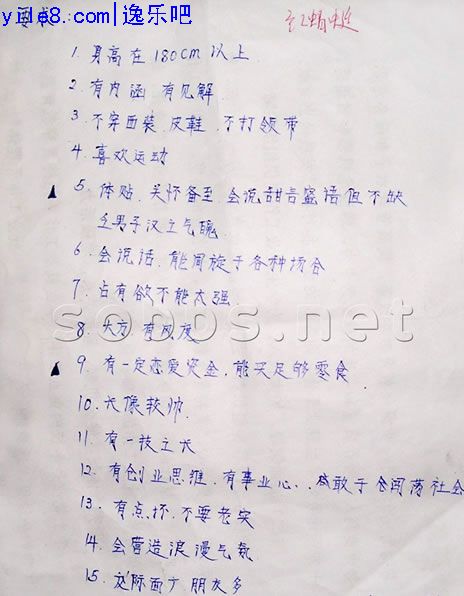 yile8.com|逸乐吧
红蜻蜓
1. 身高在180cm以上
2. 有内涵 有见解
3. 不穿西装、皮鞋、不打领带
4. 喜欢运动
▲5. 体贴、关怀备至、会说甜言蜜语但不缺
乏男子汉之气魄
6. 会说话、能周旋于各种场合
7. 占有欲不能太强
sobbs.net
8. 大方 有风度
▲9. 有一定恋爱资金,能买足够零食
10. 长像较帅
11. 有一技之长
12. 有创业思维、有事业心、敢于闯荡社会
13. 有点坏、不要老实
14. 会营造浪漫气氛
15. 交际面广 朋友多